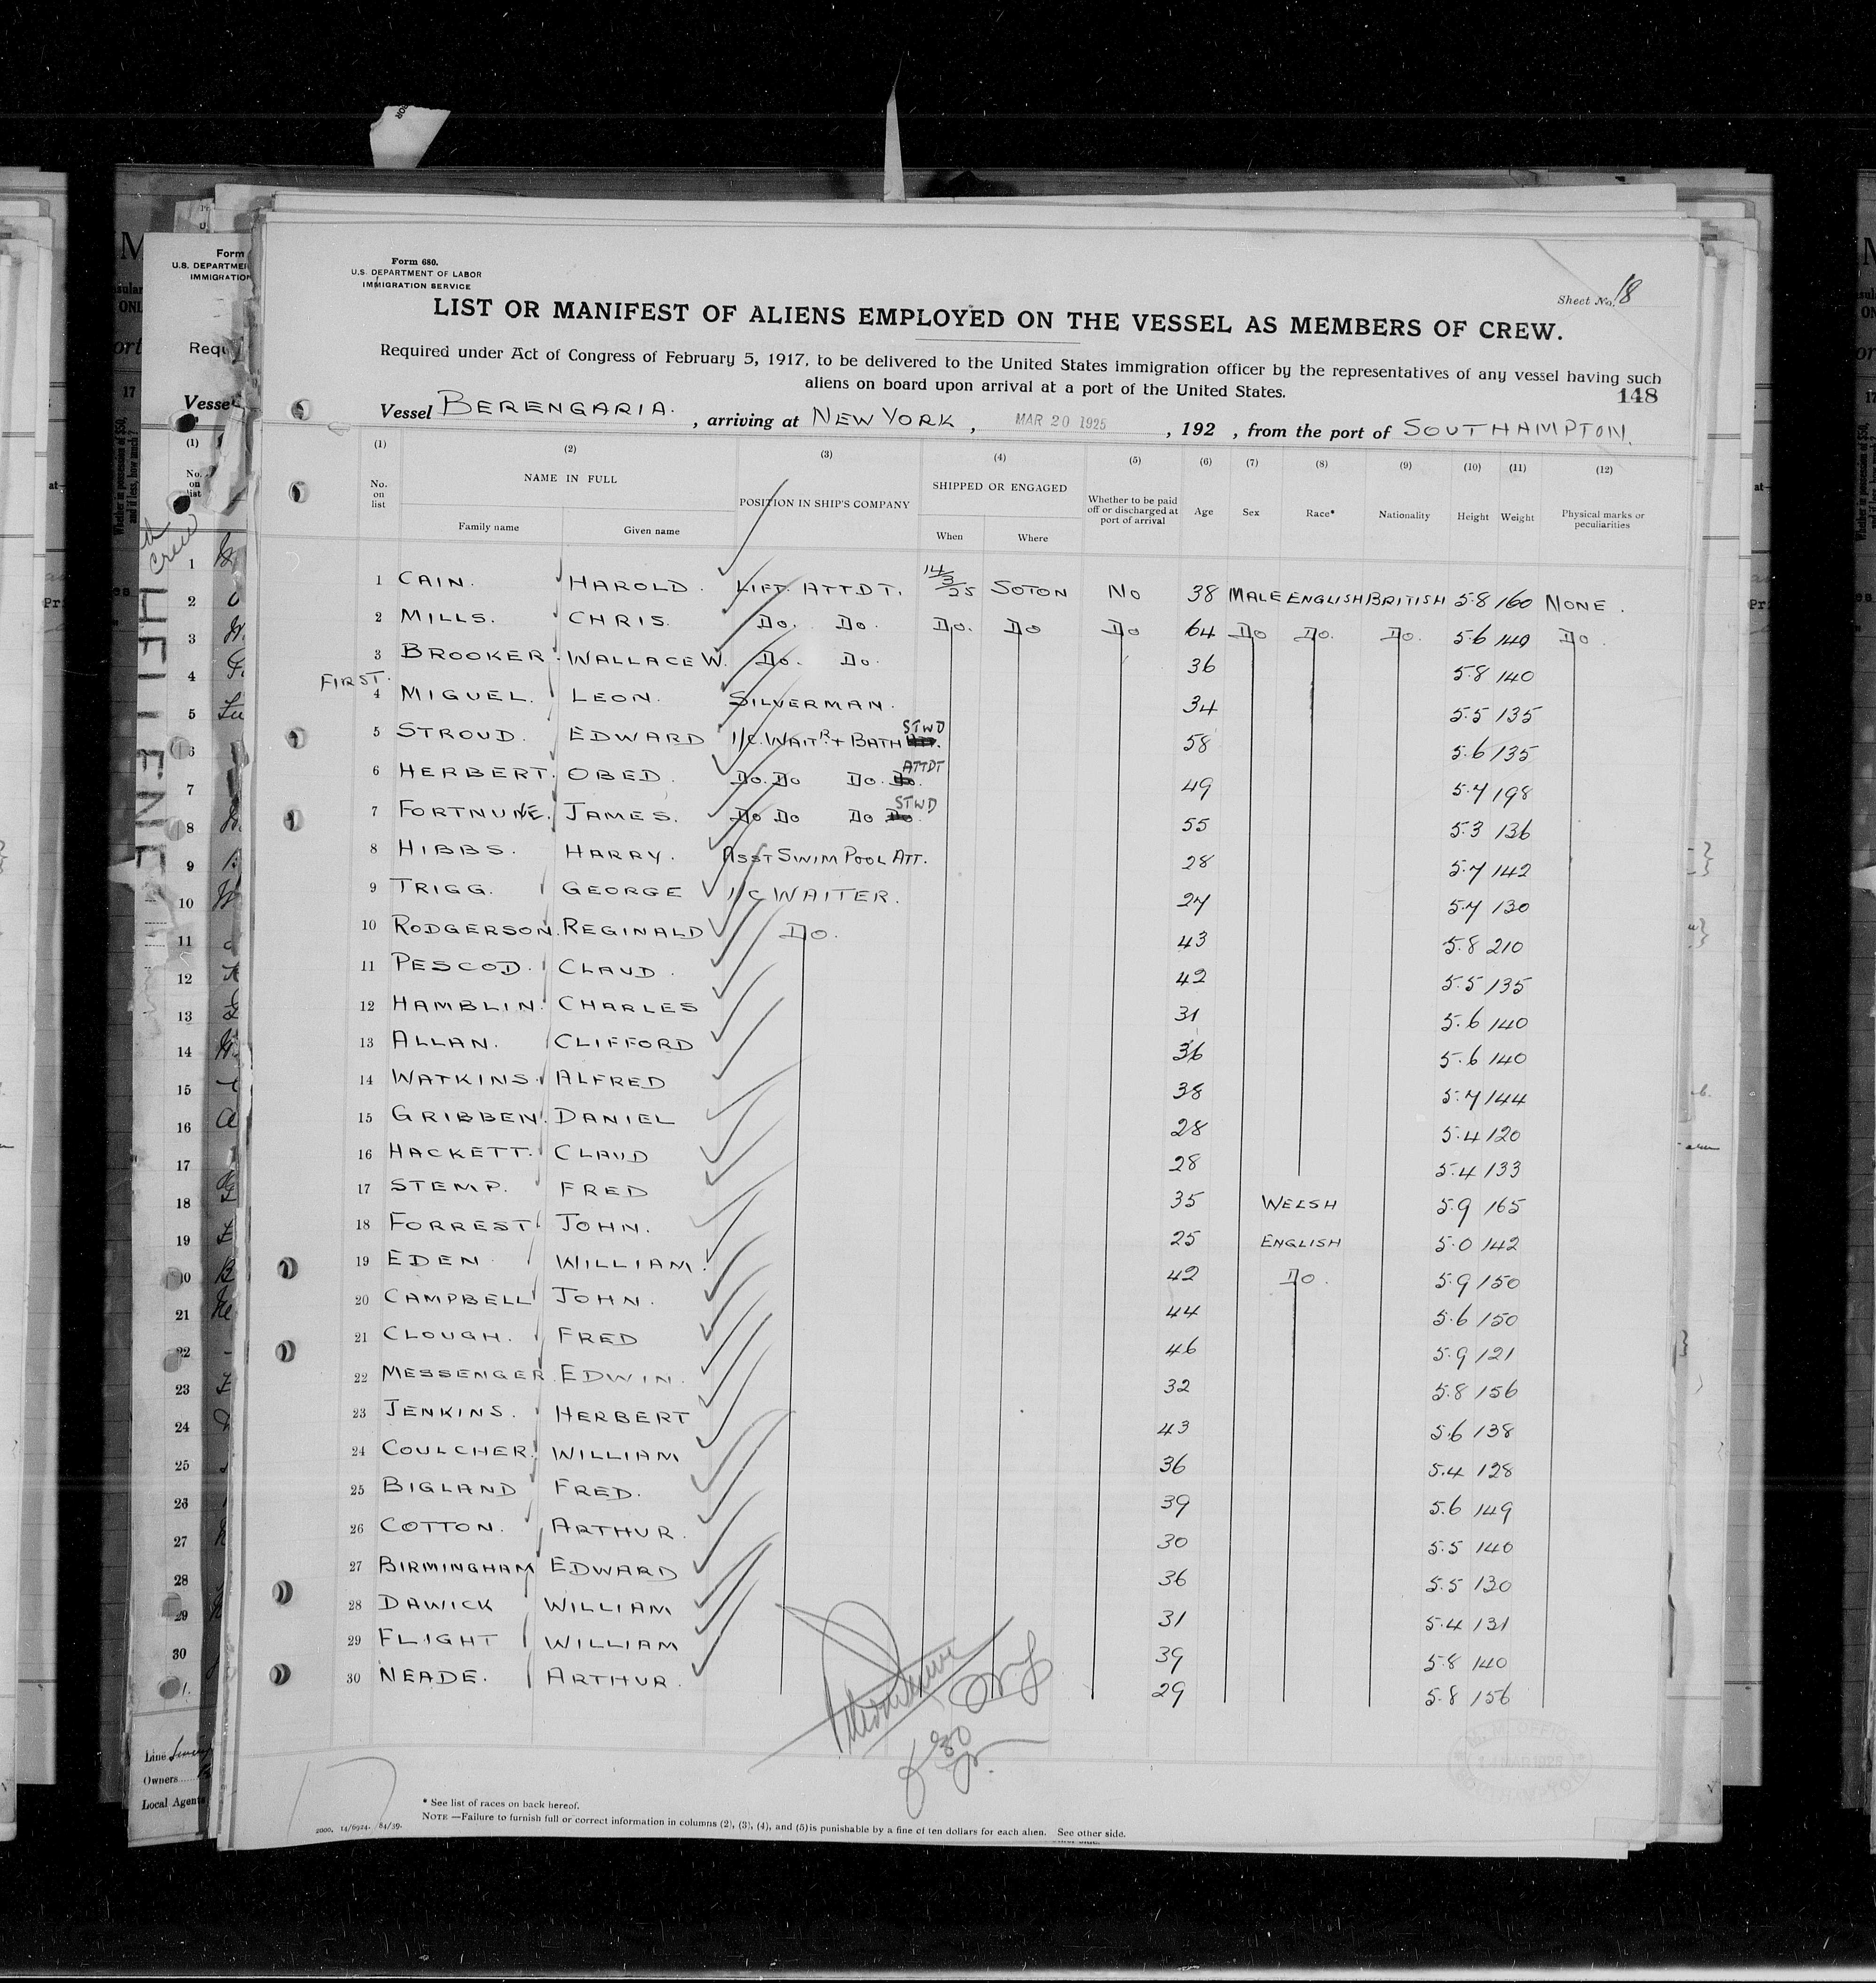 Form 680.
U.S. DEPARTMENT OF LABOR
IMMIGRATION SERVICE
Sheet No. 18
LIST OR MANIFEST OF ALIENS EMPLOYED ON THE VESSEL AS MEMBERS OF CREW.
Required under Act of Congress of February 5, 1917, to be delivered to the United States immigration officer by the representatives of any vessel having such
aliens on board upon arrival at a port of the United States.
148
Vessel BERENGARIA. , arriving at NEW YORK , MAR 20 1925 , 192 , from the port of SOUTHAMPTON.
(1) (2) (3) (4) (5) (6) (7) (8) (9) (10) (11) (12)
No. on list NAME IN FULL POSITION IN SHIP'S COMPANY SHIPPED OR ENGAGED Whether to be paid off or discharged at port of arrival Age Sex Race* Nationality Height Weight Physical marks or peculiarities
Family name Given name When Where
1 CAIN. HAROLD. LIFT ATTDT. 14/3/25 SOTON NO 38 MALE ENGLISH BRITISH 5.8 160 NONE.
2 MILLS. CHRIS. DO. DO. DO. DO DO 64 DO DO. DO. 5.6 140 DO.
3 BROOKER. WALLACE W. DO. DO. 36 5.8 140
FIRST.
4 MIGUEL. LEON. SILVERMAN. 34 5.5 135
5 STROUD. EDWARD 1/C. WAITR. + BATH STWD 58 5.6 135
6 HERBERT. OBED. DO. DO DO. DO. ATTDT 49 5.7 198
7 FORTNUNE. JAMES. DO DO DO DO. STWD 55 5.3 136
8 HIBBS. HARRY. ASST SWIM POOL ATT. 28 5.7 142
9 TRIGG. GEORGE 1/C WAITER. 27 5.7 130
10 RODGERSON. REGINALD DO. 43 5.8 210
11 PESCOD. CLAUD. 42 5.5 135
12 HAMBLIN. CHARLES 31 5.6 140
13 ALLAN. CLIFFORD 36 5.6 140
14 WATKINS. ALFRED 38 5.7 144
15 GRIBBEN. DANIEL 28 5.4 120
16 HACKETT. CLAUD 28 5.4 133
17 STEMP. FRED 35 WELSH 5.9 165
18 FORREST. JOHN. 25 ENGLISH 5.0 142
19 EDEN WILLIAM. 42 DO. 5.9 150
20 CAMPBELL JOHN. 44 5.6 150
21 CLOUGH. FRED 46 5.9 121
22 MESSENGER. EDWIN. 32 5.8 156
23 JENKINS. HERBERT 43 5.6 138
24 COULCHER. WILLIAM 36 5.4 128
25 BIGLAND FRED. 39 5.6 149
26 COTTON. ARTHUR. 30 5.5 140
27 BIRMINGHAM EDWARD 36 5.5 130
28 DAWICK WILLIAM 31 5.4 131
29 FLIGHT WILLIAM 39 5.8 140
30 NEADE. ARTHUR. 29 5.8 156
* See list of races on back hereof.
NOTE.—Failure to furnish full or correct information in columns (2), (3), (4), and (5) is punishable by a fine of ten dollars for each alien. See other side.
2000. 14/6924. 84/39.
Form
U.S. DEPARTME
IMMIGRATION
Requ
Vessel
(1)
No. on list
Crew
HELLENE
1
2
3
4
5
6
7
8
9
10
11
12
13
14
15
16
17
18
19
20
21
22
23
24
25
26
27
28
29
30
Line
Owners
Local Agents